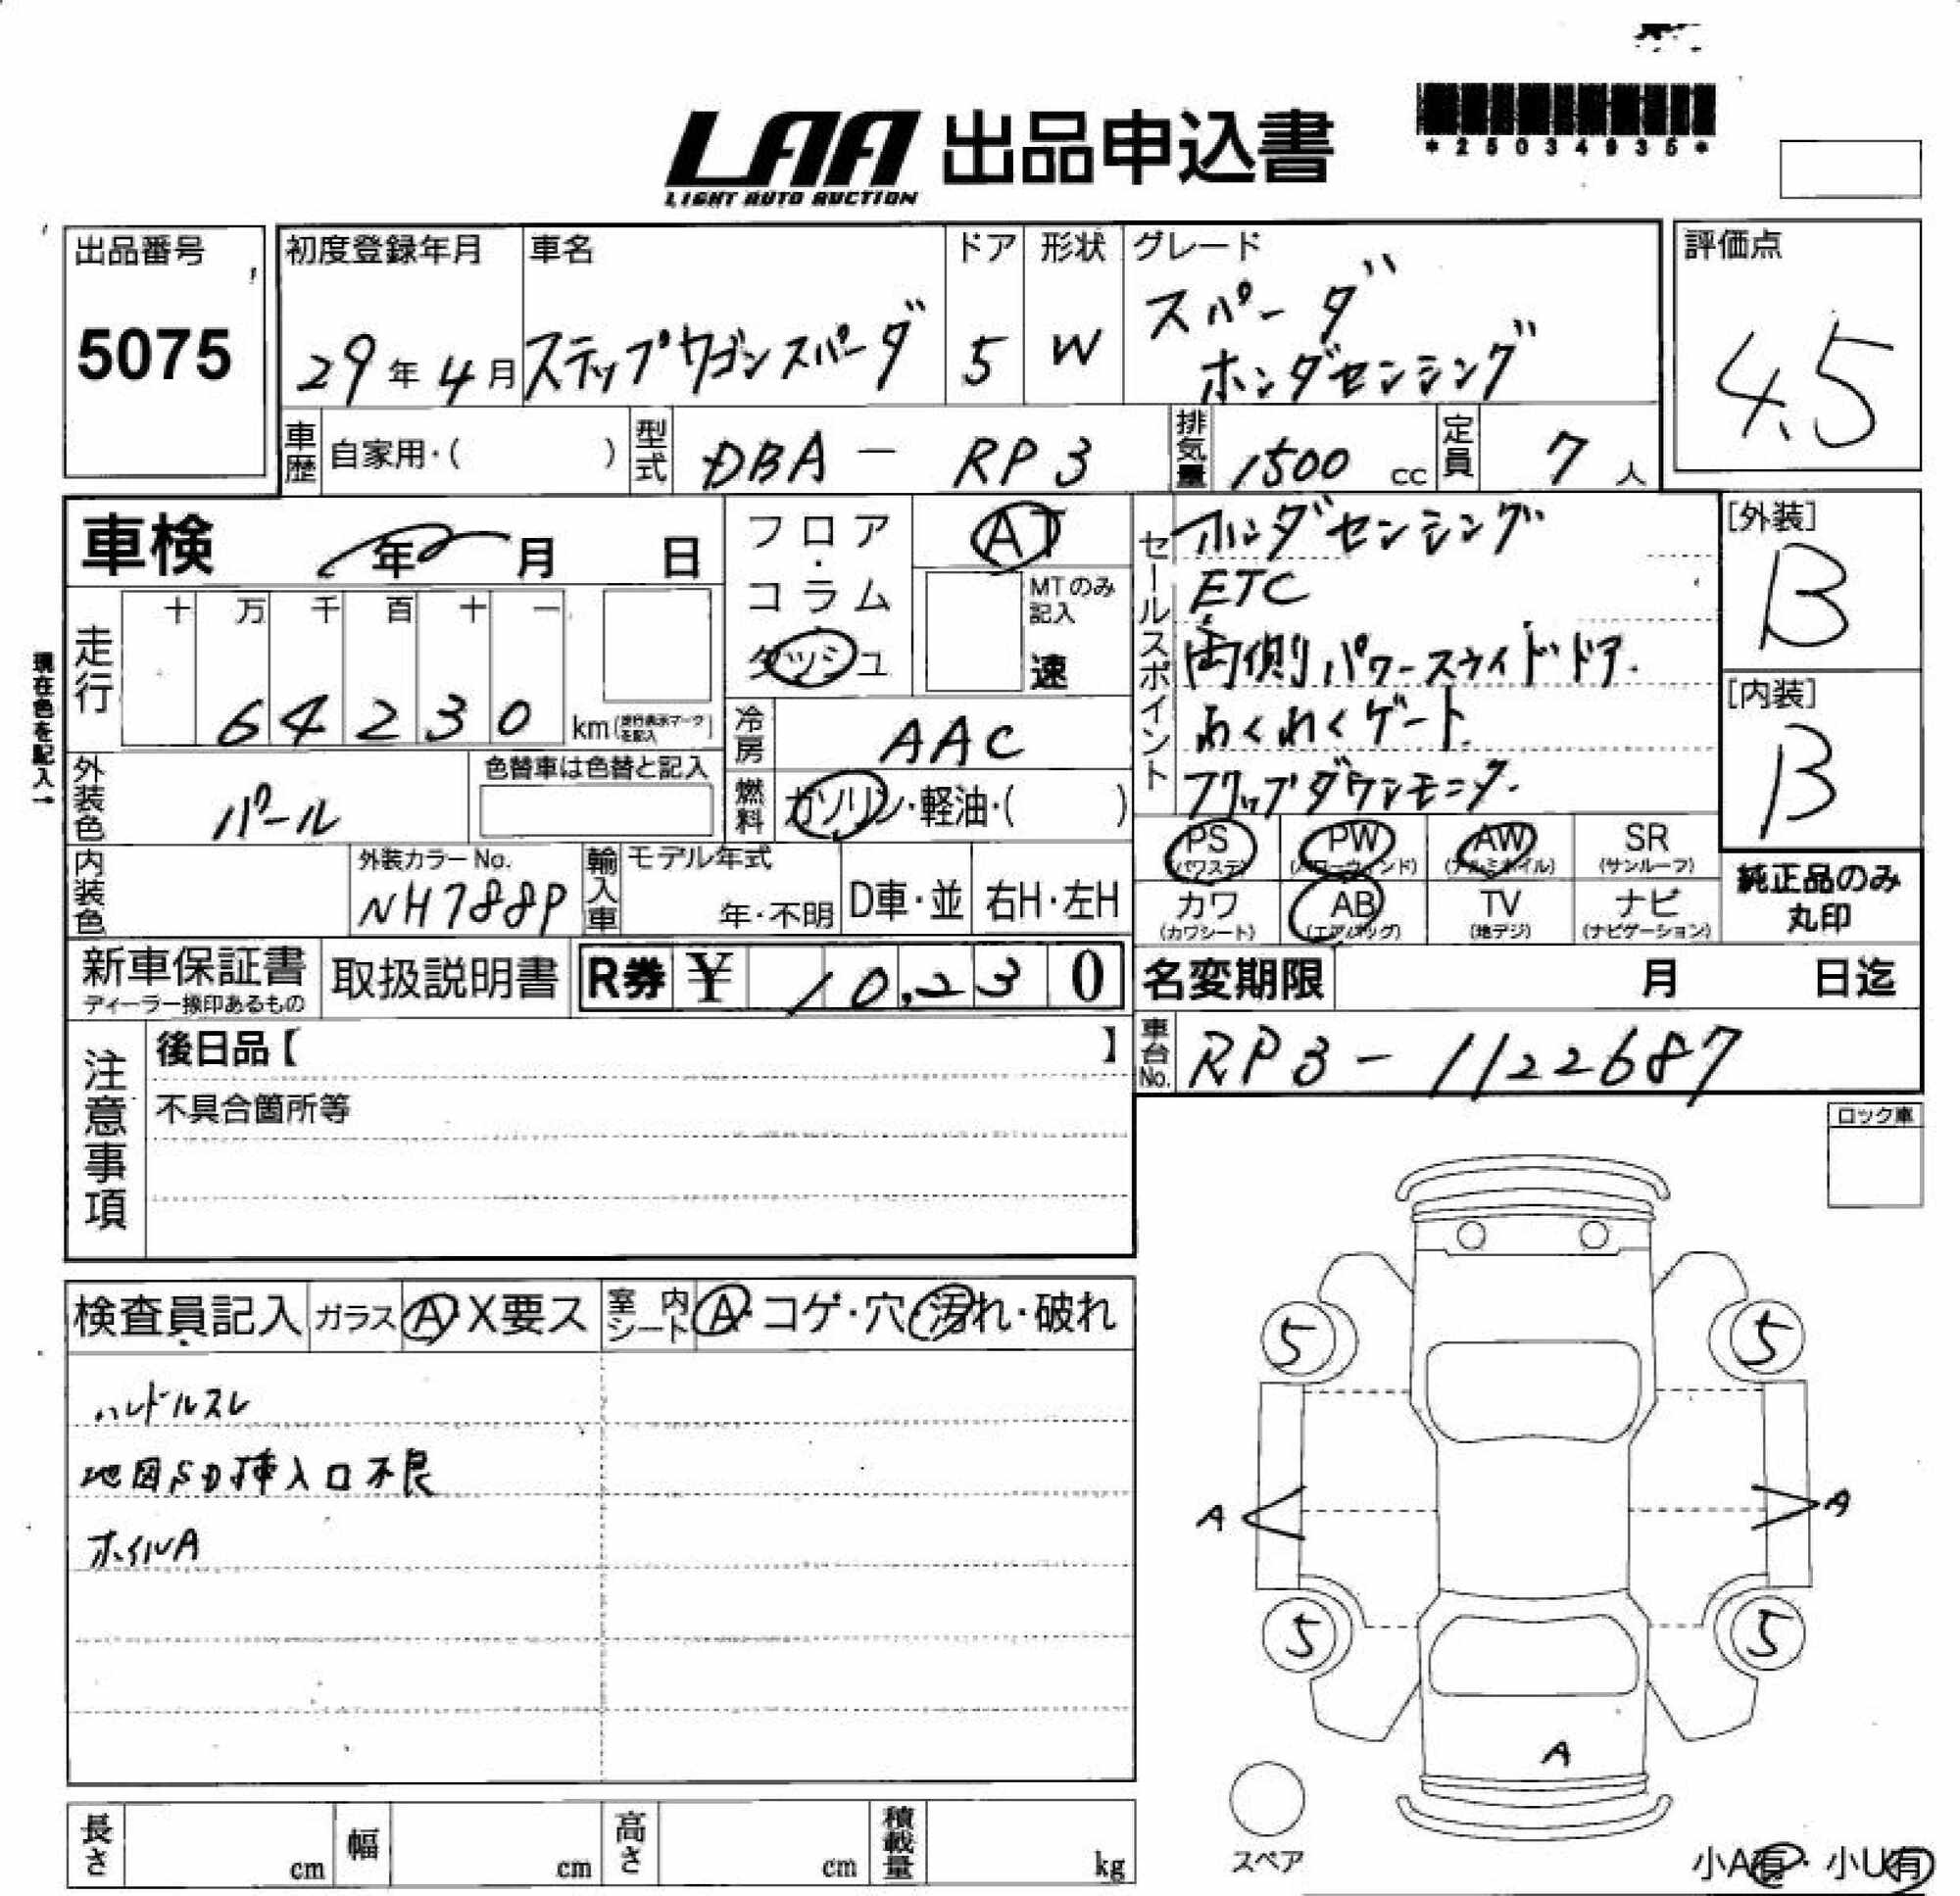 LAA 出品申込書
LIGHT AUTO AUCTION
*25034935*
出品番号
5075
初度登録年月
29年4月
車名
ステップワゴンスパーダ
ドア
5
形状
W
グレード
スパーダ
ホンダセンシング
評価点
4.5
車歴 自家用・( )
型式 DBA - RP3
排気量 1500 cc
定員 7 人
車検 年 月 日
現在色を記入→
走行
十 万 千 百 十 一
6 4 2 3 0 km (走行表示マークを記入)
外装色 パール
色替車は色替と記入
内装色
外装カラーNo.
NH788P
輸入車
モデル年式
年・不明
D車・並
右H・左H
フロア
・
コラム
・
ダッシュ
AT
MTのみ
記入
速
冷房 AAC
燃料 ガソリン・軽油・( )
セールスポイント
ホンダセンシング
ETC
両側パワースライドドア.
わくわくゲート
フリップダウンモニター
[外装]
B
[内装]
B
PS (パワステ)
PW (パワーウィンド)
AW (アルミホイル)
SR (サンルーフ)
カワ (カワシート)
AB (エアバッグ)
TV (地デジ)
ナビ (ナビゲーション)
純正品のみ
丸印
新車保証書
ディーラー捺印あるもの
取扱説明書
R券 ¥ 10,230
名変期限 月 日迄
車台No. RP3-1122687
注意事項
後日品【 】
不具合箇所等
ロック車
検査員記入
ガラス A・X要ス
室内シート A・コゲ・穴・汚れ・破れ
ハンドルスレ
地図SD挿入口不良
ホイルA
5 5
A A
5 5
A
スペア
小A有・小U有
長さ cm
幅 cm
高さ cm
積載量 kg